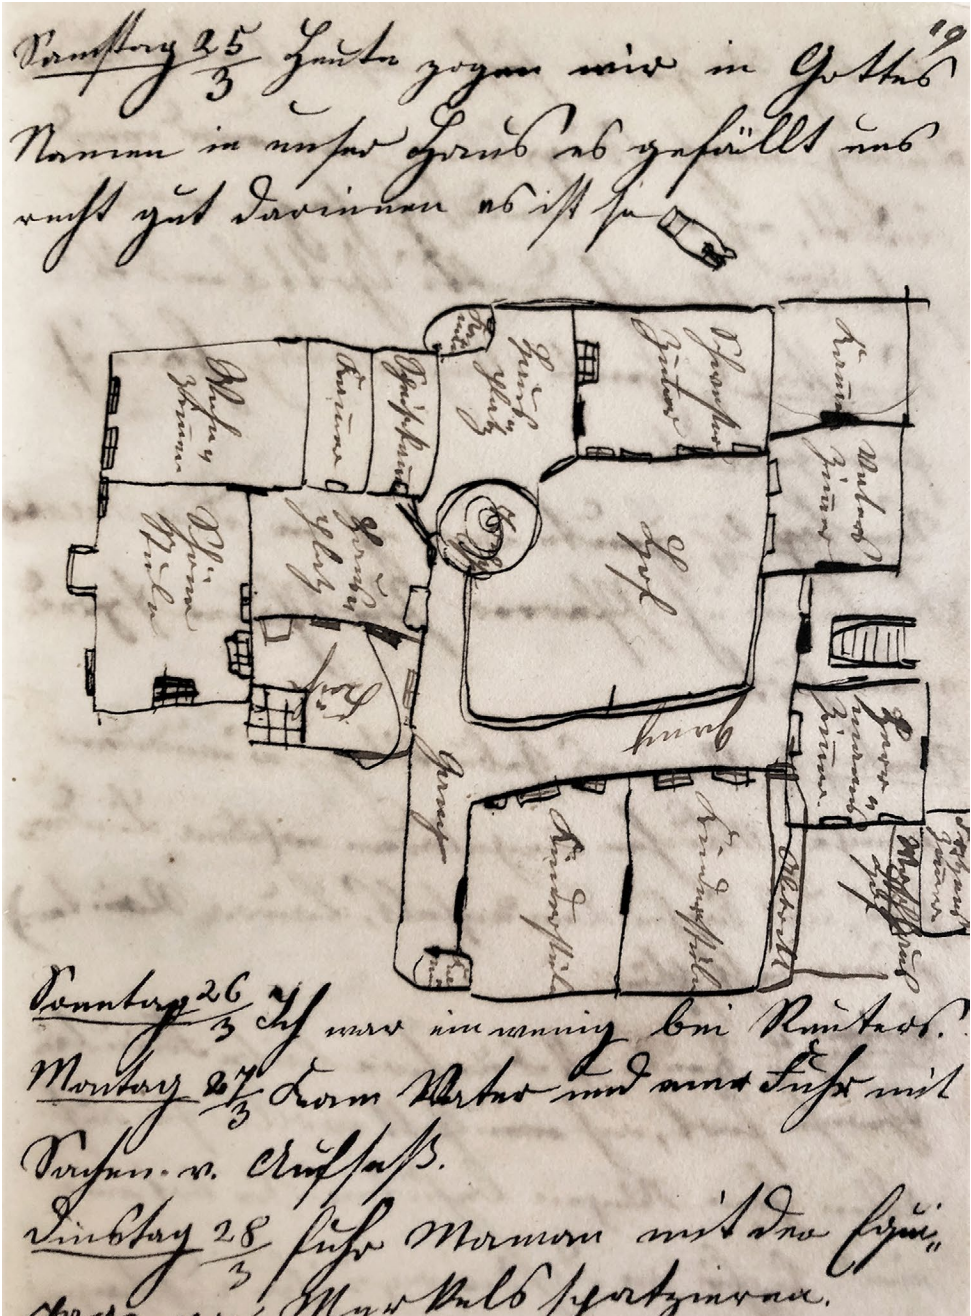 19
Samstag 25/3 Heute zogen wir in Gottes
Namen in unser Haus es gefällt uns
recht gut darinnen es ist so
Wohn
zimmer
Kammer
Speisekammer
Haus
Platz
Schwester
Zimmer
Kammer
Vaters
Zimmer
Schöne
Stube
Haus
Platz
Hof
Küche
Gang
Gang
Zimmer
Kinderstube
Kinderstube
Abtritt
Sonntag 26/3 Ich war ein wenig bei Reuters.
Montag 27/3 Kam Vater und eine Fuhr mit
Sachen v. Aufseß.
Dinstag 28/3 fuhr Maman mit der Equi„
page v. Merkels spatzieren.